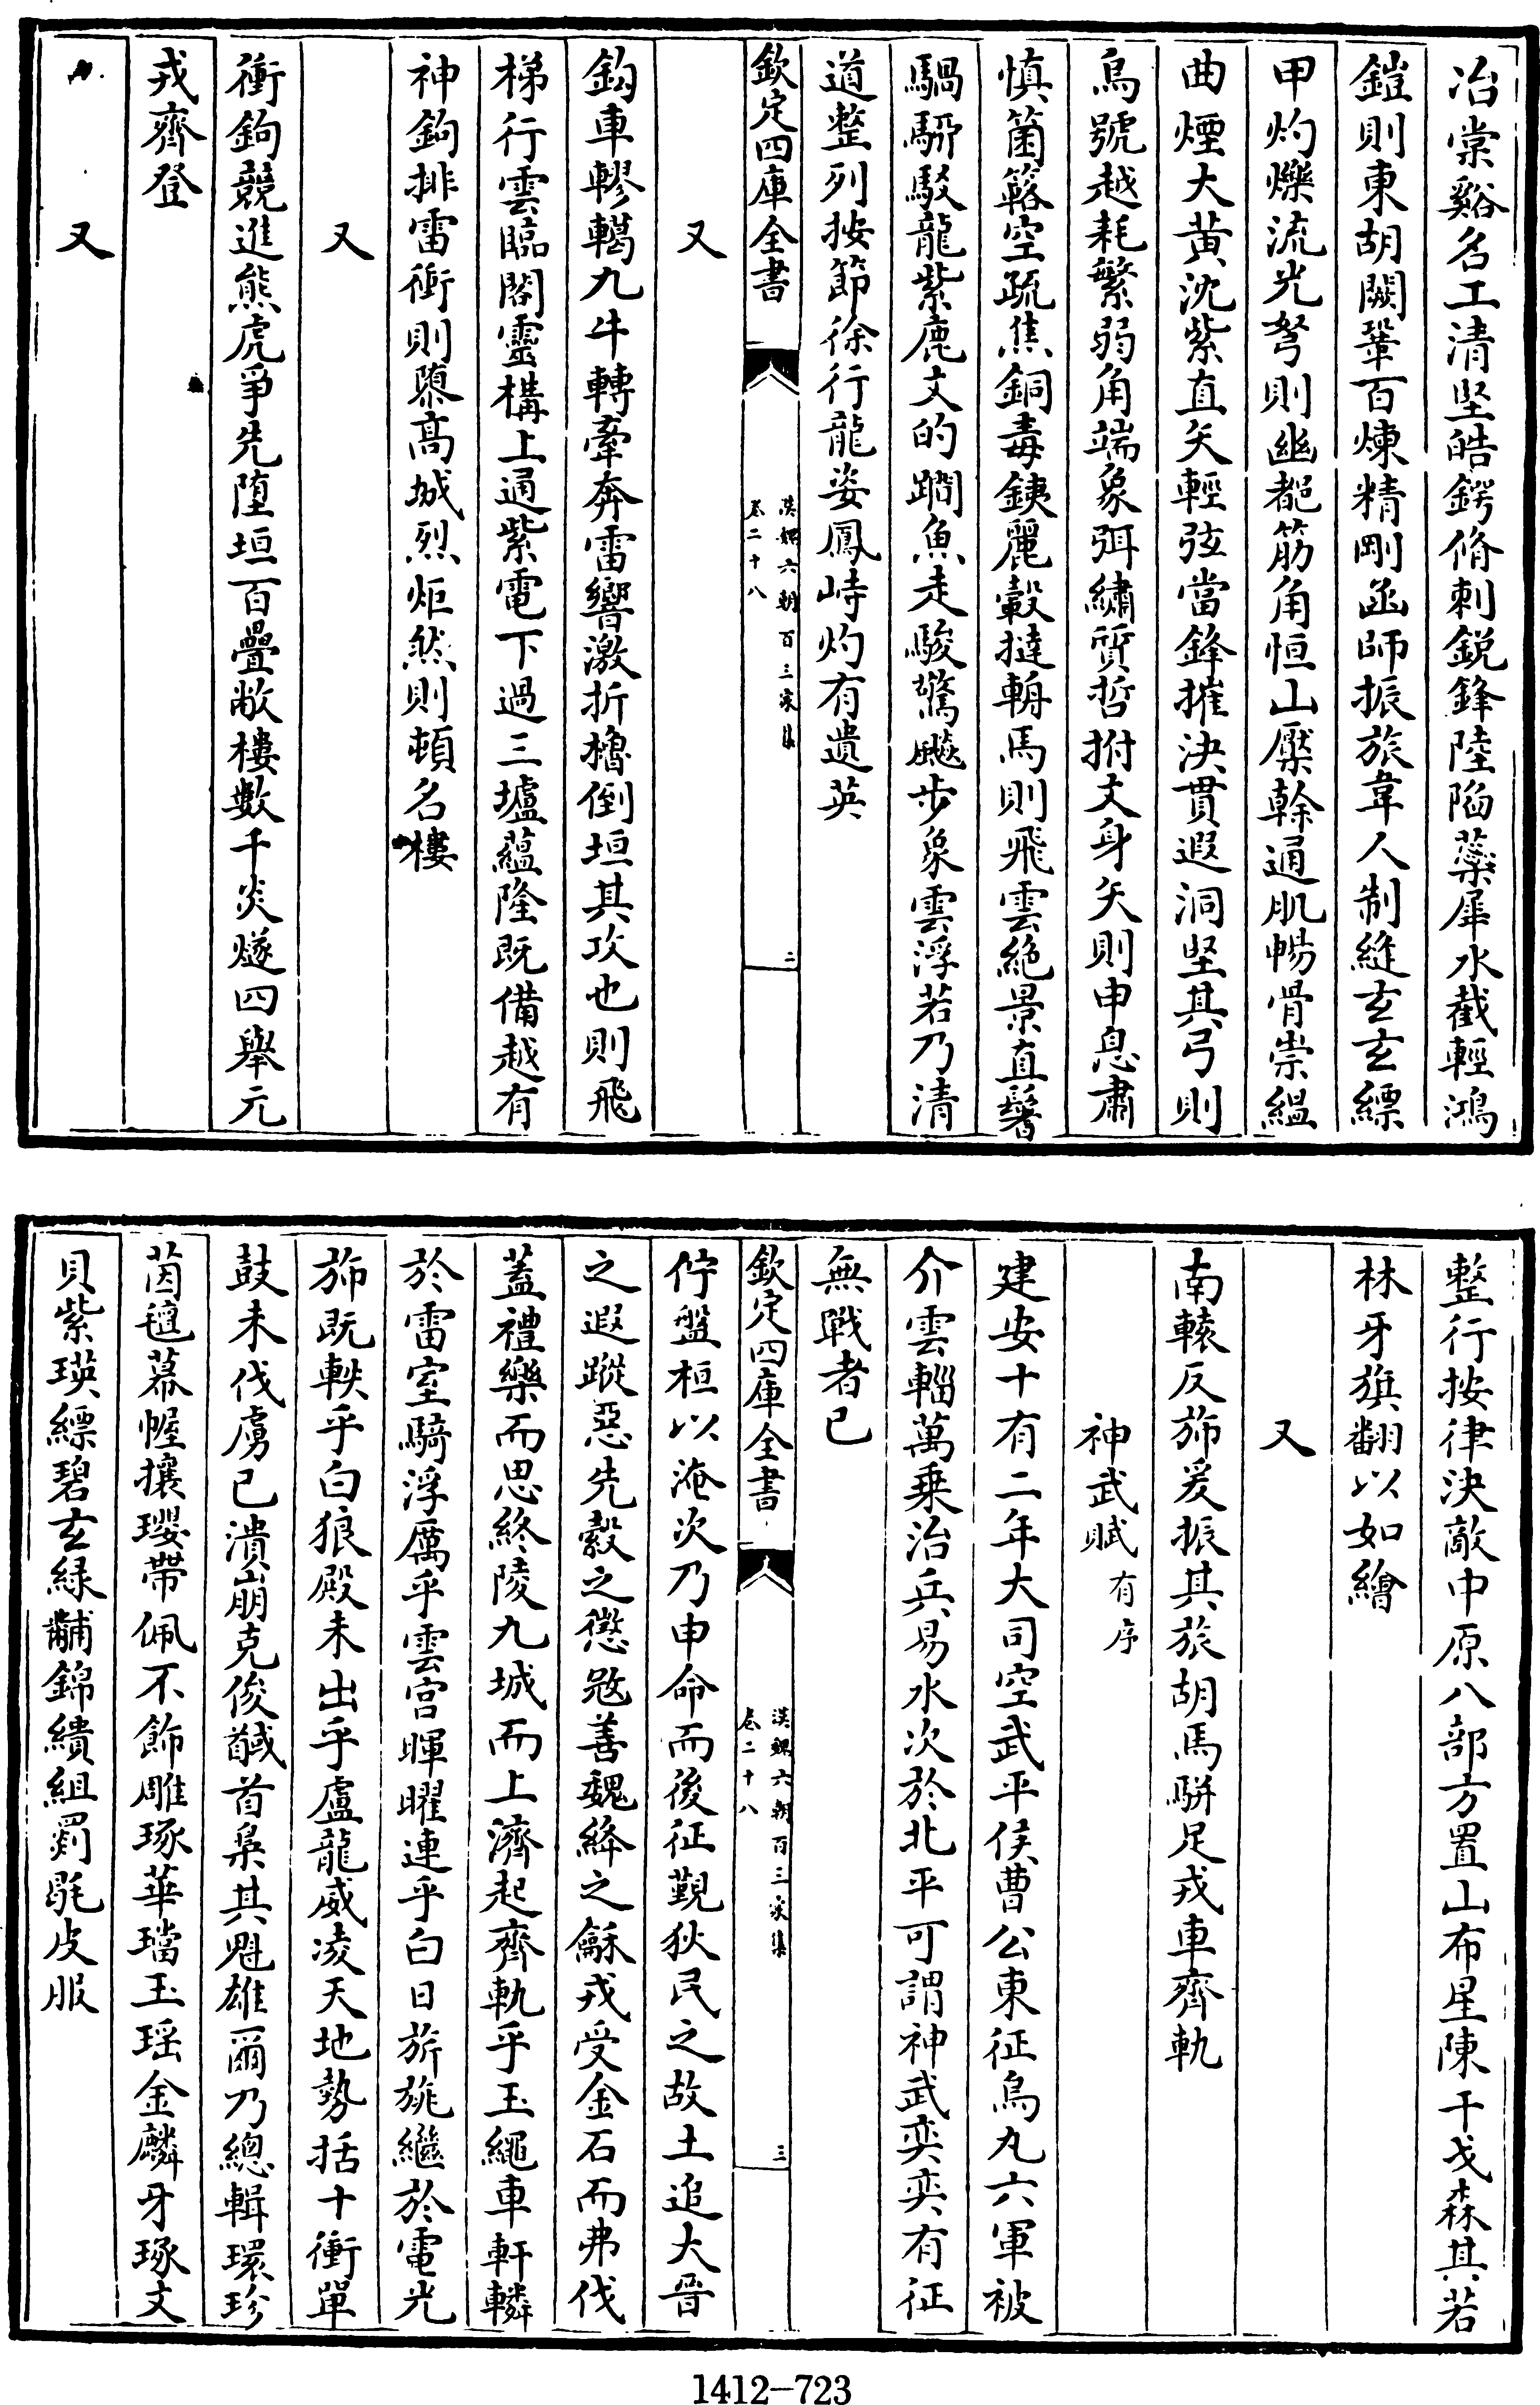 冶棠谿名工清堅皓鍔脩刺鋭鋒陸陷蘂犀水截輕鴻
鎧則東胡闕鞏百煉精剛函師振旅韋人制縫玄玄縹
甲灼爍流光弩則幽都筋角恒山檿幹通肌暢骨崇緼
曲煙大黄沈紫直矢輕弦當鋒摧決貫遐洞堅其弓則
烏號越耗繁弱角端象弭繡質晢拊文身矢則申息肅
慎箘簬空疏焦銅毒鐵麗轂撻輈馬則飛雲絶景直鬐
騧駵駮龍紫鹿文的𨅍魚走駿驚飈步象雲浮若乃清
道整列按節徐行龍姿鳳峙灼有遺英
欽定四庫全書
漢魏六朝百三家集
卷二十八
二
又
鈎車轇轕九牛轉牽奔雷響激折櫓倒垣其攻也則飛
梯行雲臨閣靈構上通紫電下過三壚藴隆既備越有
神鉤排雷衝則隳高城烈炬然則頓名樓
又
衝鉤競進熊虎爭先墮垣百疊敝樓數千炎燧四舉元
戎齊登
又
整行按律決敵中原八部方置山布星陳干戈森其若
林牙旗翻以如繪
又
南轅反斾爰振其旅胡馬駢足戎車齊軌
神武賦有序
建安十有二年大司空武平侯曹公東征烏丸六軍被
介雲輜萬乗治兵易水次於北平可謂神武奕奕有征
無戰者已
欽定四庫全書
漢魏六朝百三家集
卷二十八
三
佇盤桓以淹次乃申命而後征覲狄民之故土追大晉
之遐蹤惡先縠之懲寇善魏絳之龢戎受金石而弗伐
蓋禮樂而思終陵九城而上濟起齊軌乎玉繩車軒轔
於雷室騎浮厲乎雲宫暉曜連乎白日旂旐繼於電光
斾既軼乎白狼殿未出乎盧龍威凌天地勢括十衝單
鼓未伐虜已潰崩克俊馘首梟其魁雄爾乃總輯瓌珍
茵氊幕幄攘瓔帶佩不飾雕琢華璫玉瑶金麟牙琢文
貝紫瑛縹碧玄緑黼錦繢組罽毦皮服
1412-723